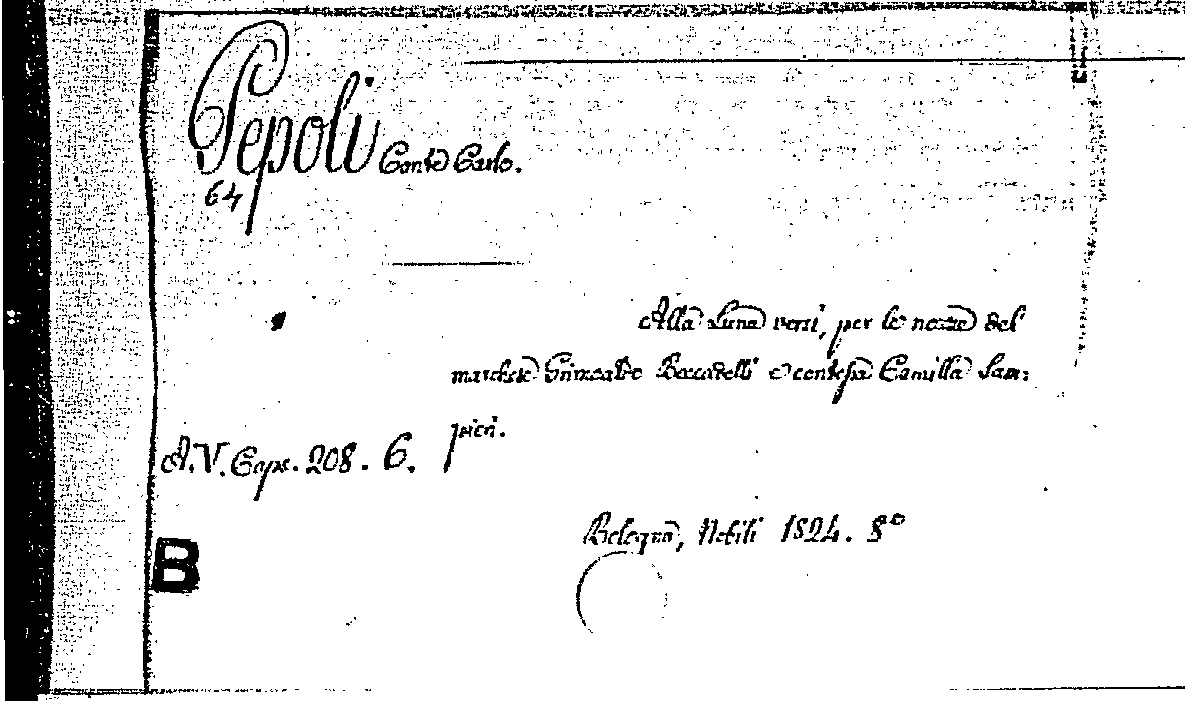 Pepoli Conte Carlo.
64
Alla Luna versi, per le nozze del
marchese Grimoaldo Beccadelli e contessa Camilla Sam:
pieri.
A.V. Caps. 208. 6.
Bologna, Nobili 1824. 8°
B